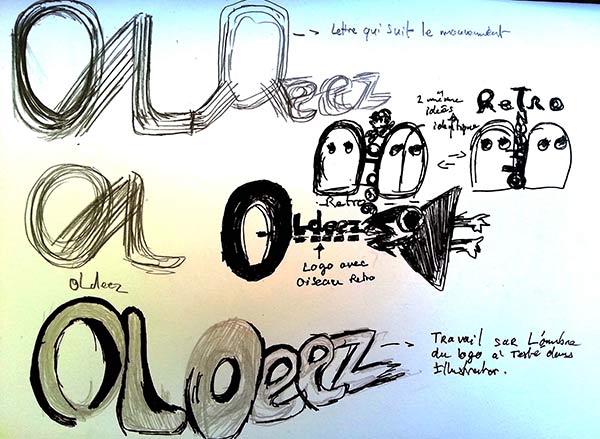 OLDeez
Lettre qui suit le mouvement
2 même
idées
identique
ReTro
OL
Retro
OLdeez
Logo avec
Oiseau Retro
OLdeez
OLDeez
Travail sur L'ombre
du logo à Testé dans
Illustrator.